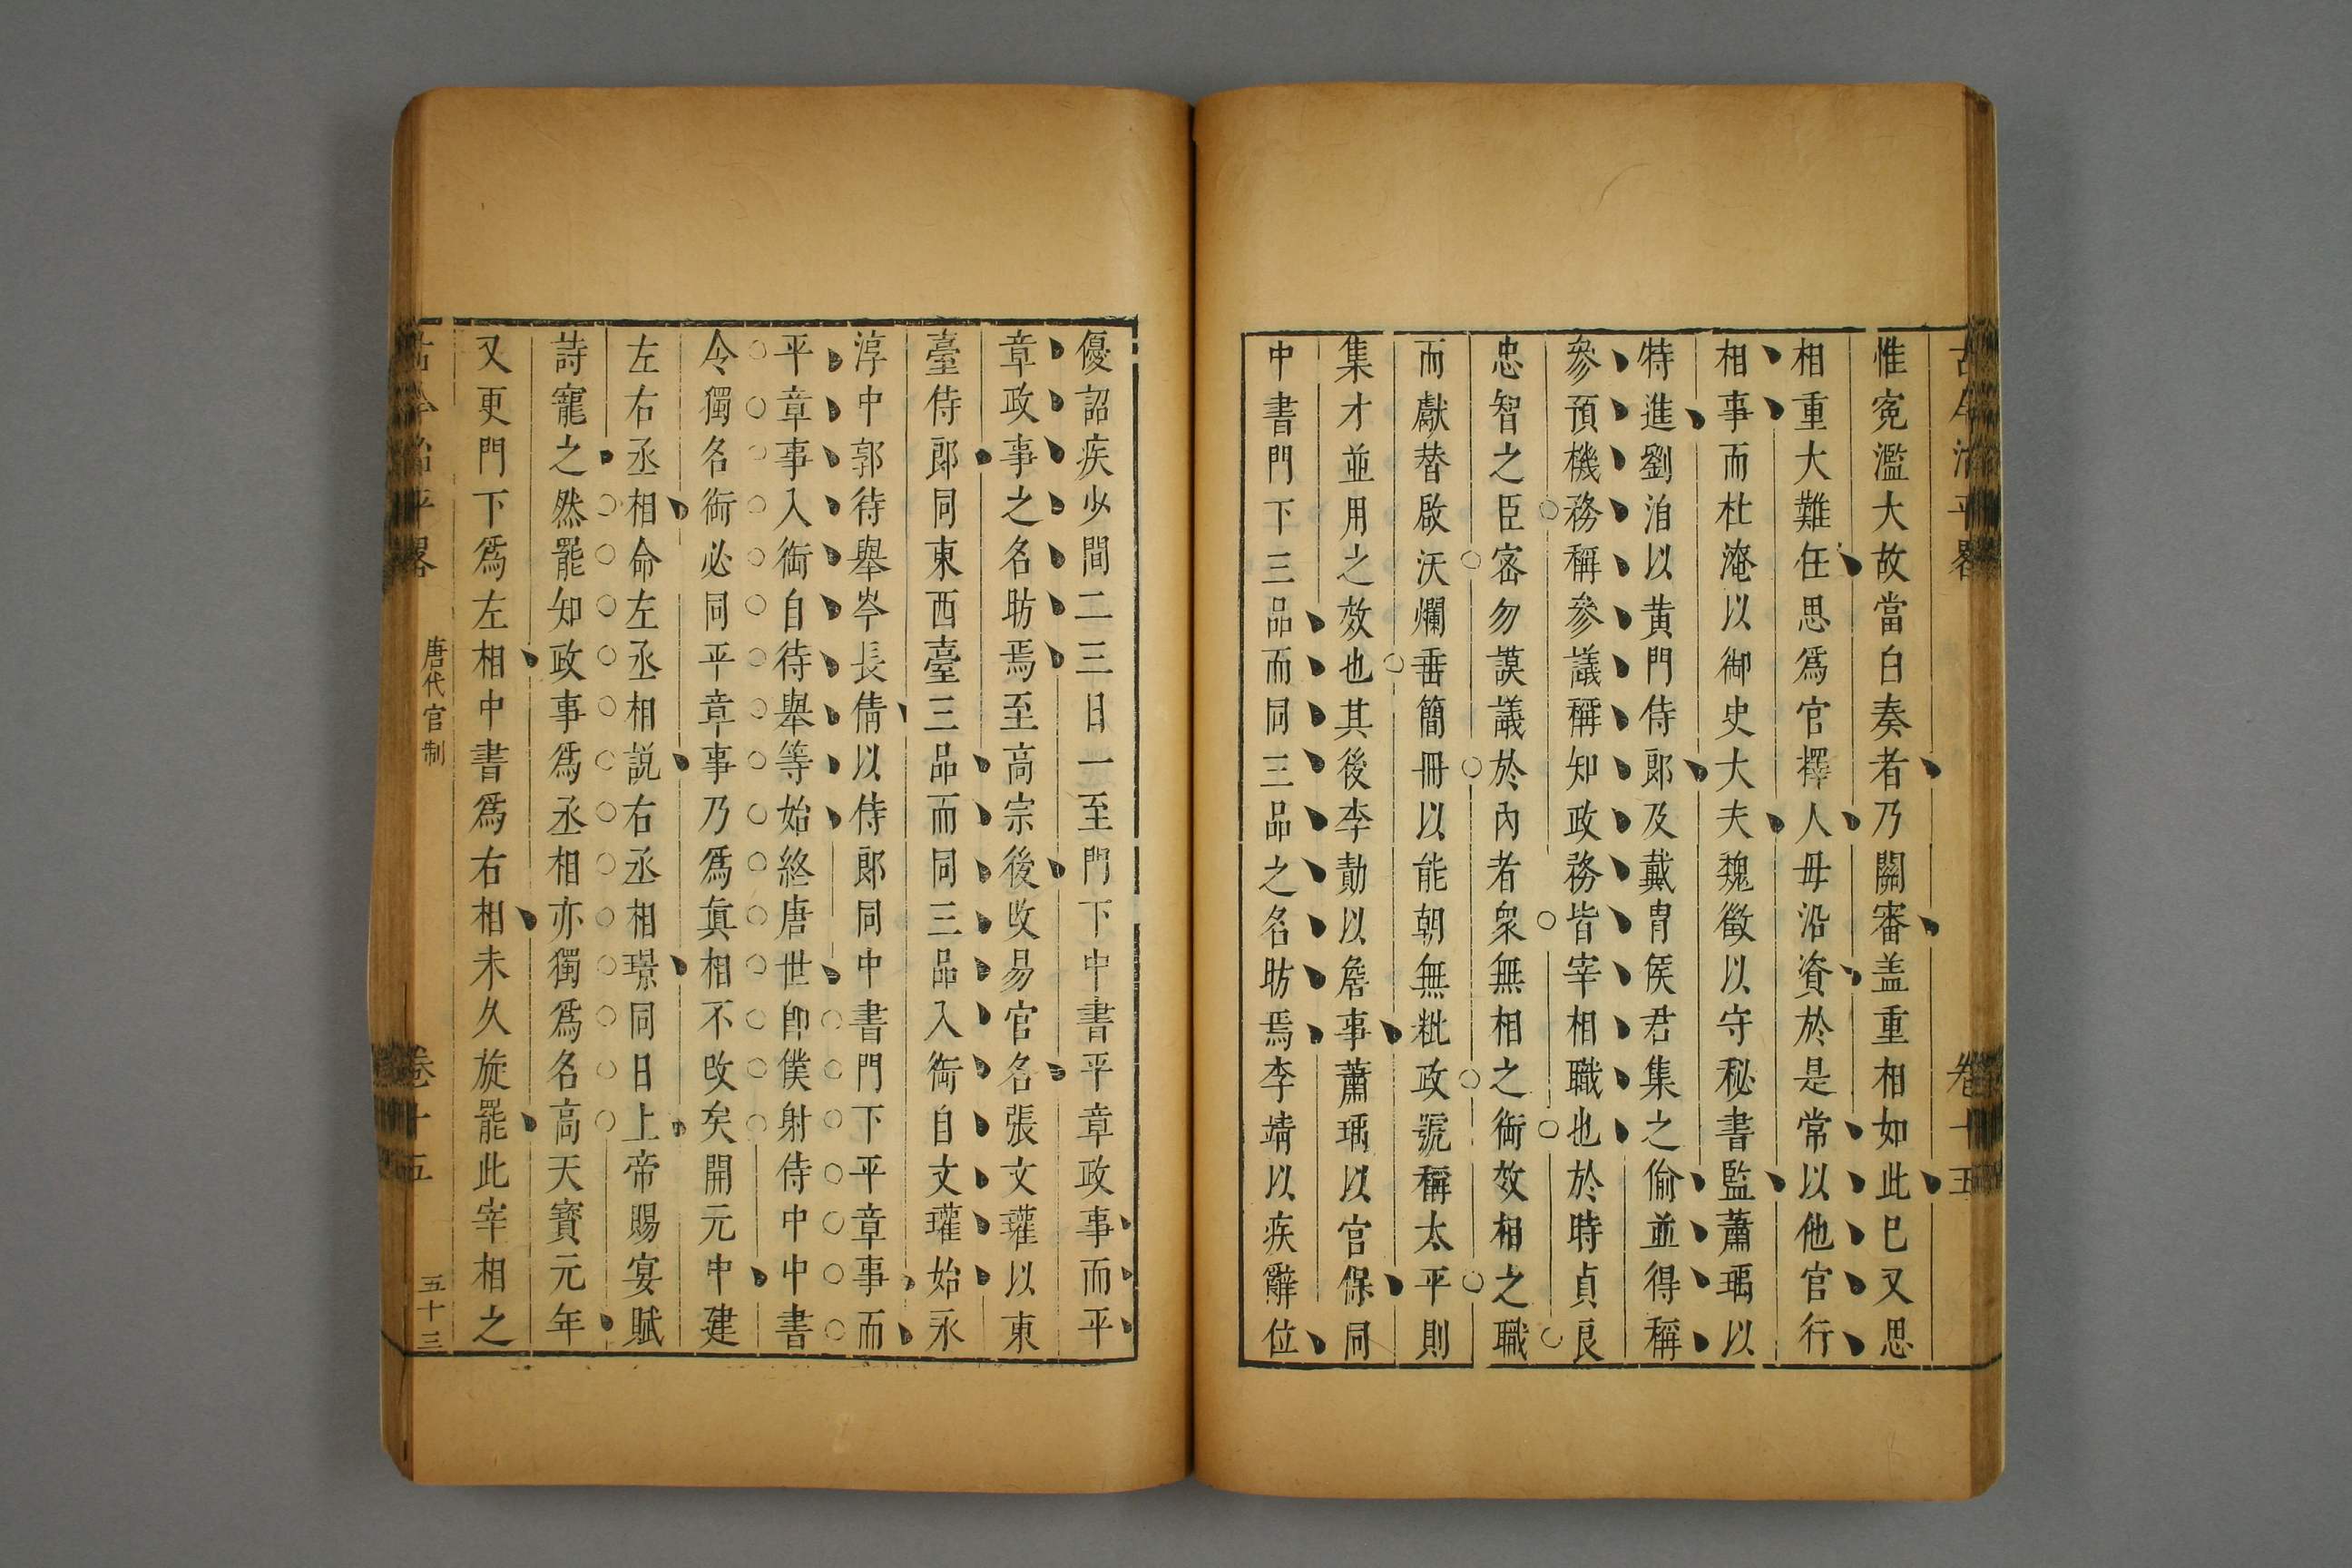 古今治平畧 卷十五
惟寃濫大故當白奏者乃關審盖重相如此巳又思
相重大難任思爲官擇人毋沿資於是常以他官行
相事而杜淹以御史大夫魏徵以守秘書監蕭瑀以
特進劉洎以黄門侍郎及戴胄侯君集之偷並得稱
參預機務稱參議稱知政務皆宰相職也於時貞良
忠智之臣密勿謨議於內者衆無相之銜效相之職
而獻替啟沃爛垂簡冊以能朝無粃政號稱太平則
集才並用之效也其後李勣以詹事蕭瑀以宫保同
中書門下三品而同三品之名昉焉李靖以疾辭位
優詔疾少間二三日一至門下中書平章政事而平
章政事之名昉焉至高宗後改易官名張文瓘以東
臺侍郎同東西臺三品而同三品入銜自文瓘始永
淳中郭待舉岑長倩以侍郎同中書門下平章事而
平章事入銜自待舉等始終唐世卽僕射侍中中書
令獨名銜必同平章事乃爲眞相不改矣開元中建
左右丞相命左丞相説右丞相璟同日上帝賜宴賦
詩寵之然罷知政事爲丞相亦獨爲名高天寳元年
又更門下爲左相中書爲右相未久旋罷此宰相之
古今治平畧 唐代官制 卷十五 五十三